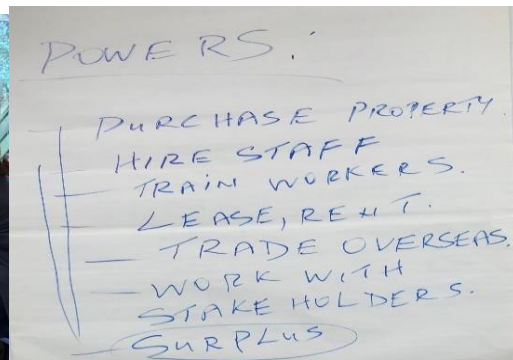 POWERS:
PURCHASE PROPERTY.
HIRE STAFF
TRAIN WORKERS.
LEASE, RENT.
TRADE OVERSEAS.
WORK WITH
STAKE HOLDERS.
SURPLUS